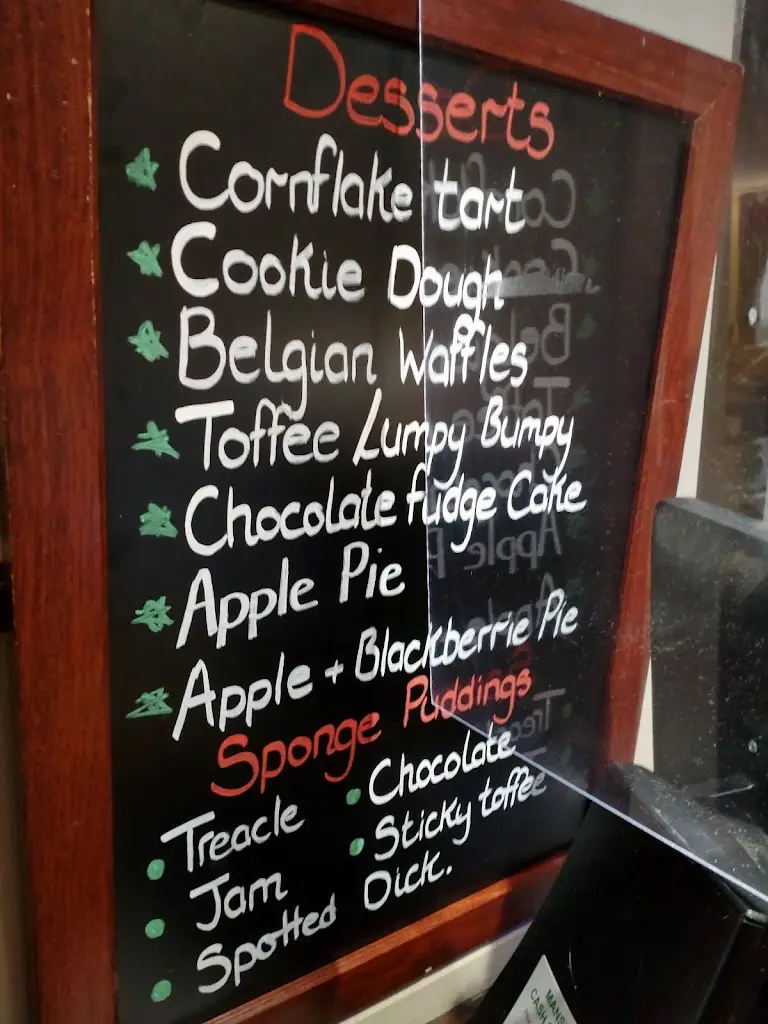 Desserts
Cornflake tart
Cookie Dough
Belgian Waffles
Toffee Lumpy Bumpy
Chocolate fudge Cake
Apple Pie
Apple + Blackberrie Pie
Sponge Puddings
Treacle
Jam
Spotted Dick.
Chocolate
Sticky toffee